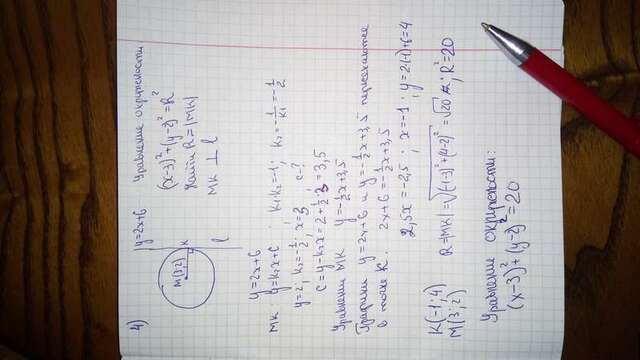 4)
y=2x+6 Уравнение окружности
(x-3)²+(y-2)²=R²
M(3;2) K
Найти R=|MK|
MK ⊥ l
l
y=2x+6
MK: y=k₂x+c ; k₁·k₂=-1 ; k₂=-1/k₁=-1/2
y=2; k₂=-1/2; x=3, c-?
c=y-k₂x=2+1/2·3=3,5
Уравнение MK y=-1/2x+3,5
Графики y=2x+6 и y=-1/2x+3,5 пересекаются
в точке K. 2x+6=-1/2x+3,5
2,5x=-2,5 ; x=-1 ; y=2·(-1)+6=4
K(-1;4) R=|MK|=√((-1-3)²+(4-2)²)=√20 ; R²=20
M(3;2)
Уравнение окружности:
(x-3)²+(y-2)²=20